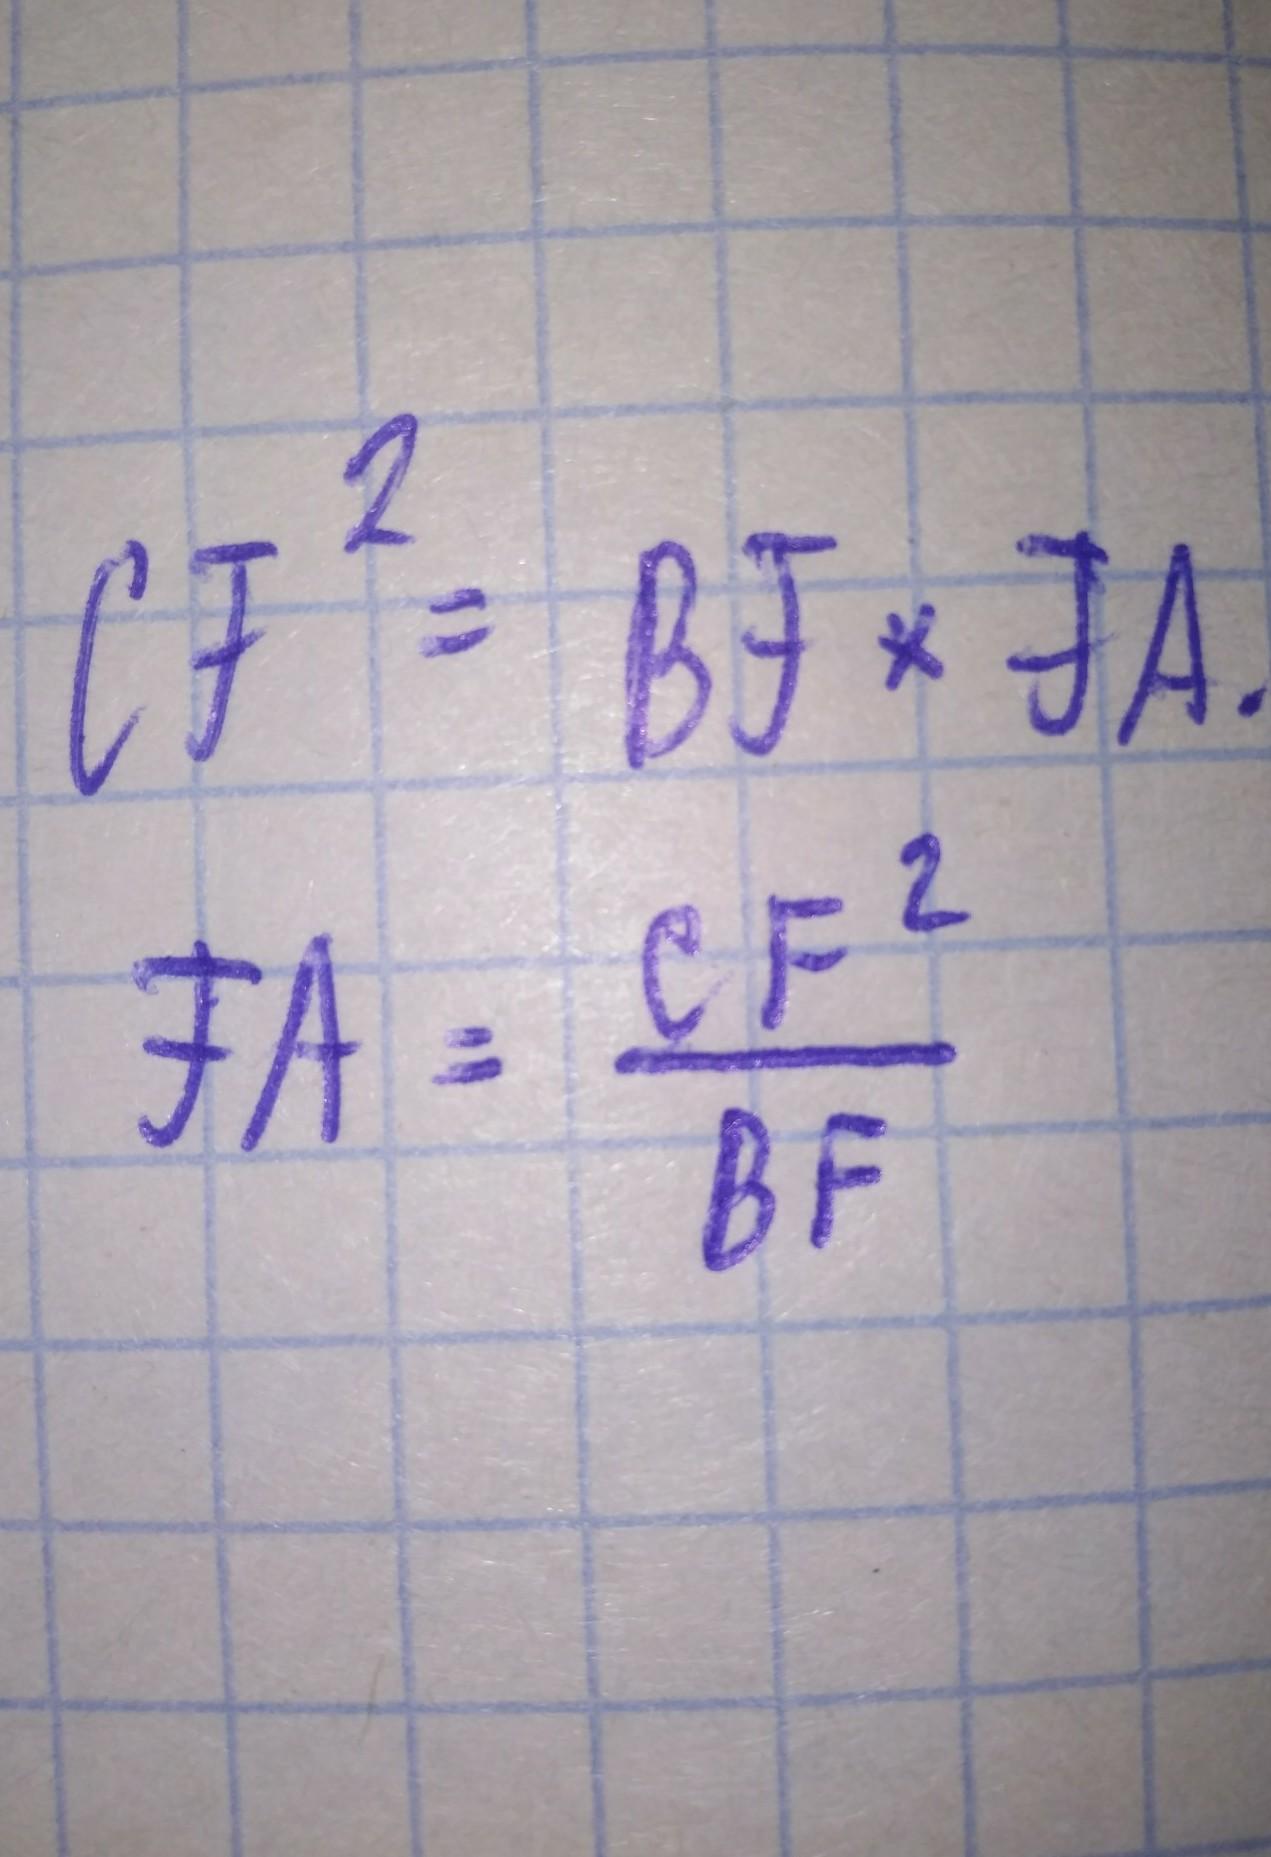 CF² = BF × FA.
FA = CF² / BF